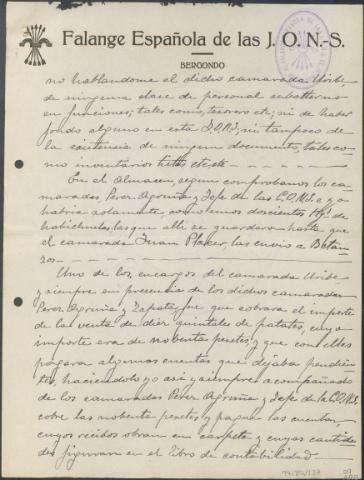 Falange Española de las J. O. N.-S.
BERGONDO
no hablandome el dicho camarada Uribe,
de ninguna clase de personal subalterno
en funciones; tales como, tesorero etc; ni de haber
fondos alguno en esta J.O.N.S, ni tampoco de
la existencia de ningun documento, tales co-
mo inventarios
En el Almacen, segun comprobamos los ca-
maradas Perez Agruña y Jefe de las C.O.N.S. e yo
habria solamente, como unos doscientos Kgs de
habichuelas, las que alli se guardaron hasta que
el camarada Juan Placer, las envio a Betan-
zos
Uno de los encargos del camarada Uribe
y siempre en presencia de los dichos camaradas
Perez Agruña y Zapata fue que cobrara el importe
de la venta de diez quintales de patatas, cuyo
importe era de nobenta pesetas, y que con ellas
pagara algunas cuentas que dejaba pendien-
tes, haciendolo yo asi y siempre acompañado
de los camaradas Perez Agruña y Jefe de la C.O.N.S.
cobre las nobenta pesetas y pague las cuentas
cuyos recibos obran en carpeta y cuyas cantida-
des figuran en el libro de contabilidad